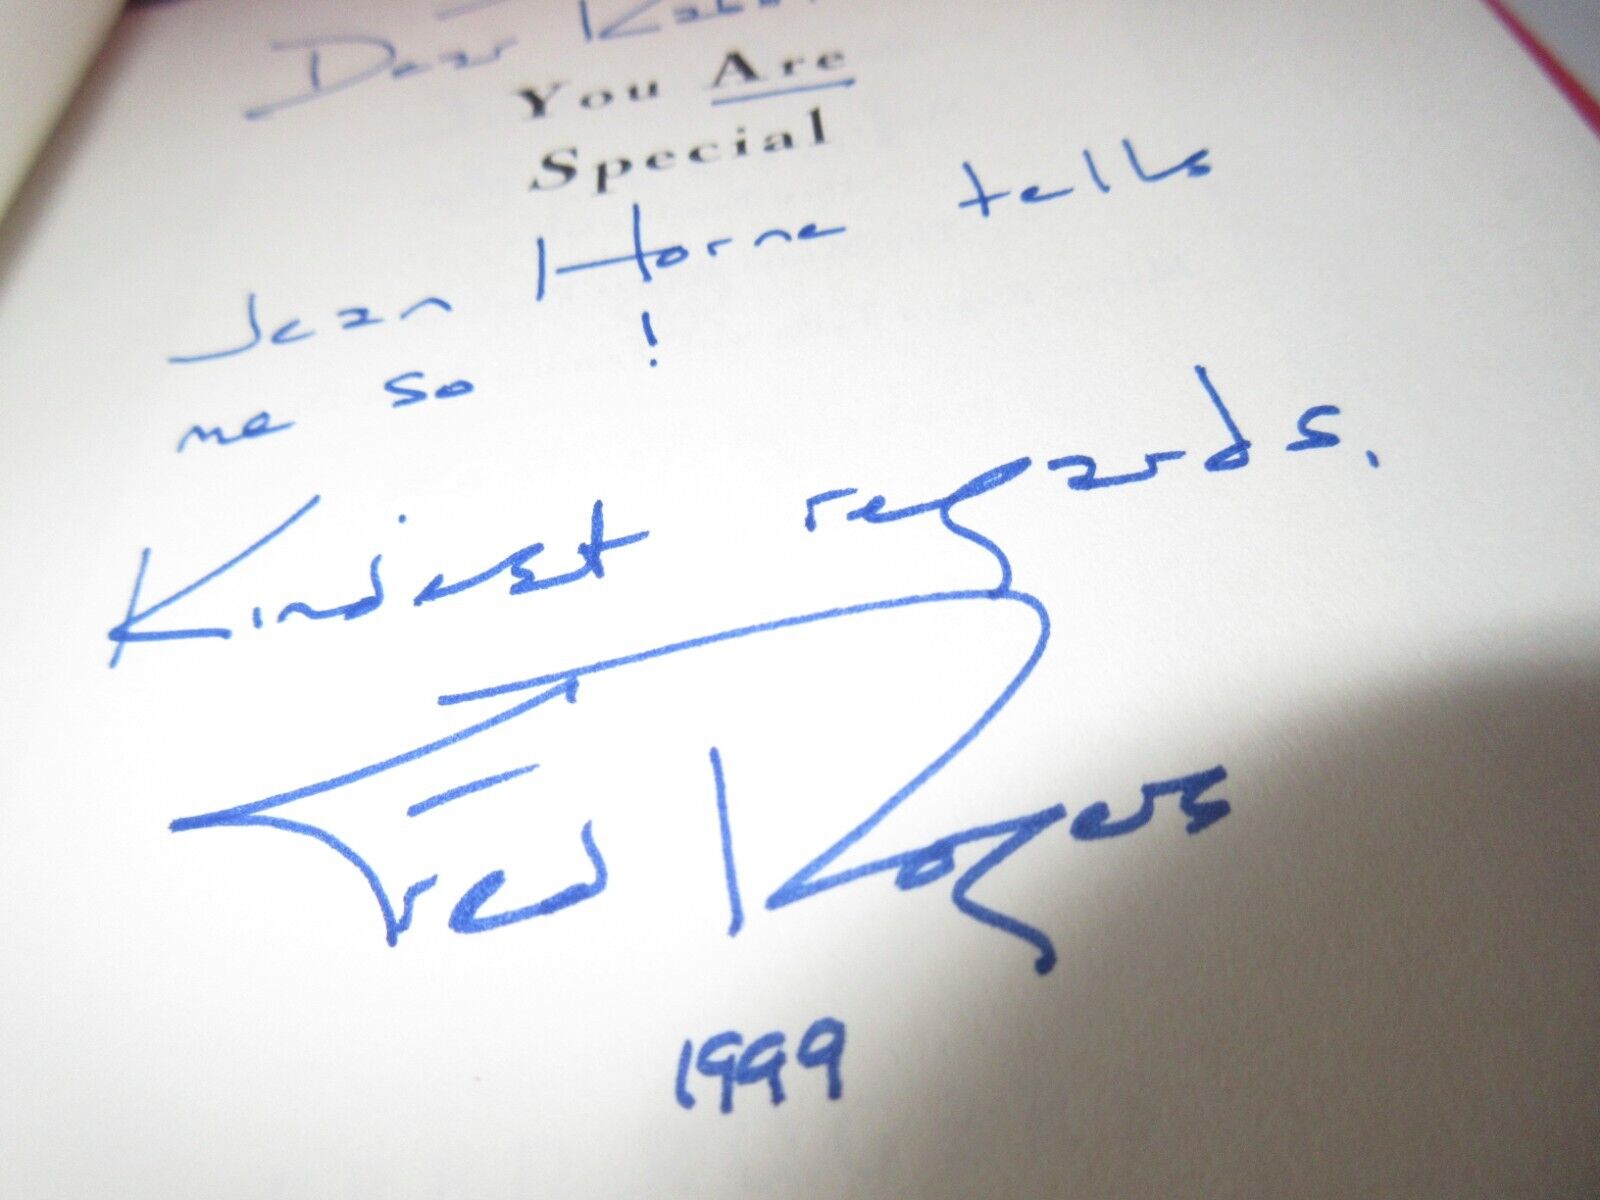 Dear
You Are
Special
Jean Horne tells
me so !
Kindest regards,
Fred Rogers
1999